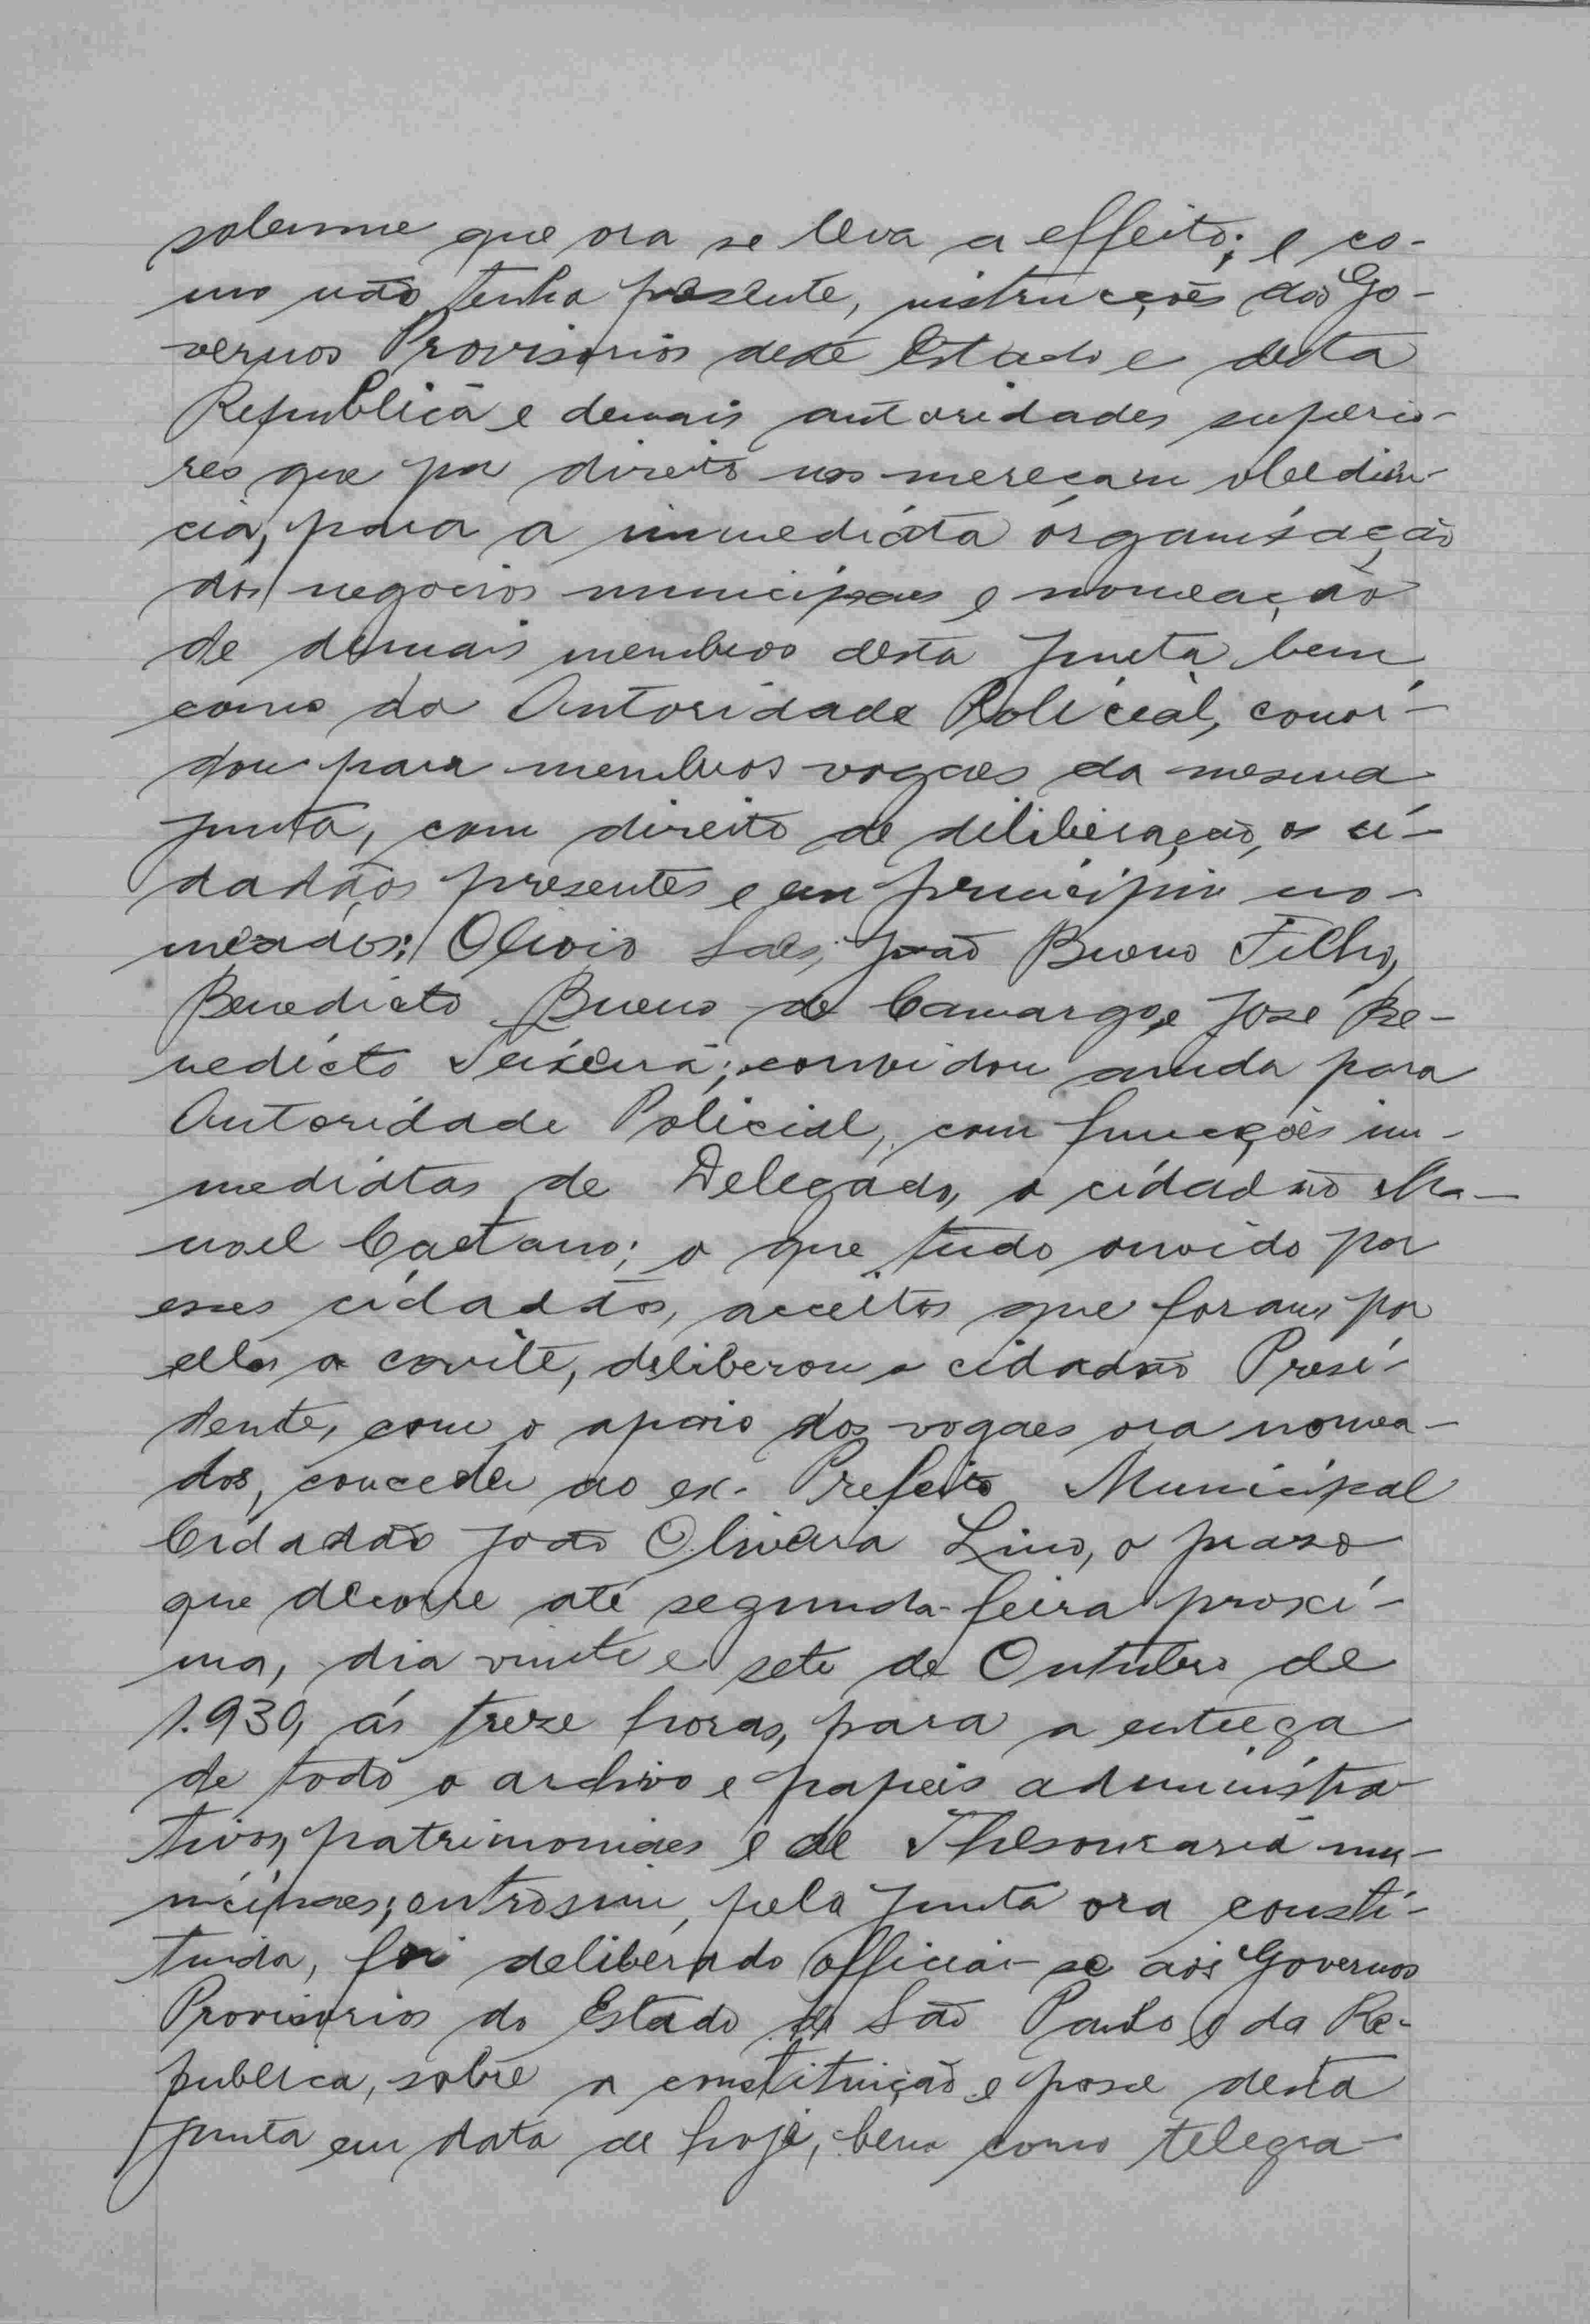 solemne que ora se leva a effeito; e co-
mo não tenha presente, instrucções dos Go-
vernos Provisorios deste Estado e desta
Republica e demais autoridades superio-
res que por direito nos mereçam obediên-
cia, para a immediata organisação
dos negocios municipaes e nomeação
de demais membros desta Junta, bem
como da Autoridade Policial, convi-
dou para membros vogaes da mesma
Junta, com direito de deliberação, os ci-
dadãos presentes e em principio no-
meados: Olivio Sales, João Bueno Filho,
Benedicto Bueno de Camargo, e José Be-
nedicto Teixeira; convidou ainda para
Autoridade Policial, com funcções im-
mediatas de Delegado, o cidadão Ma-
noel Caetano; o que tudo ouvido por
esses cidadãos, acceitos que foram por
elles o convite, deliberou o cidadão Presi-
dente, com o apoio dos vogaes ora nomea-
dos, conceder ao ex-Prefeito Municipal
Cidadão João Oliveira Lino, o praso
que decorre até segunda-feira proxi-
ma, dia vinte e sete de Outubro de
1.930, ás treze horas, para a entrega
de todo o archivo e papeis administra-
tivos, patrimoniaes e de Thesouraria mu-
nicipaes; outrosim, pela Junta ora consti-
tuida, foi deliberado officiar-se aos Governos
Provisorios do Estado de São Paulo e da Re-
publica, sobre a constituição e posse desta
Junta em data de hoje, bem como telegra-